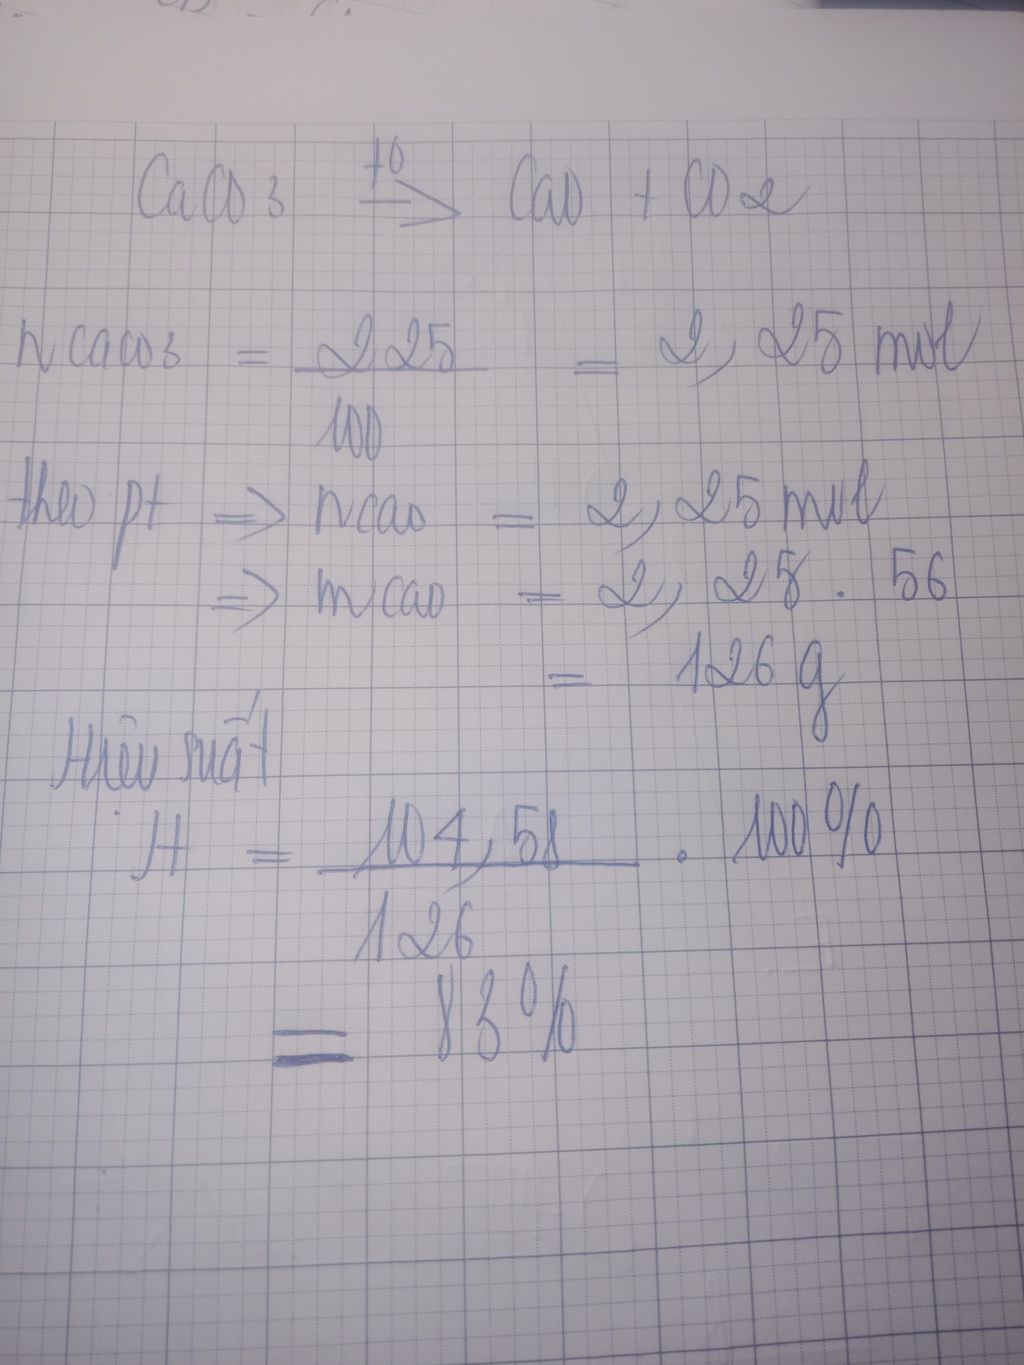 CaCO3 t0 => CaO + CO2
n CaCO3 = 225 / 100 = 2,25 mol
theo pt => n CaO = 2,25 mol
=> m CaO = 2,25 . 56
= 126 g
Hiệu suất
H = 104,58 / 126 . 100 %
= 83 %